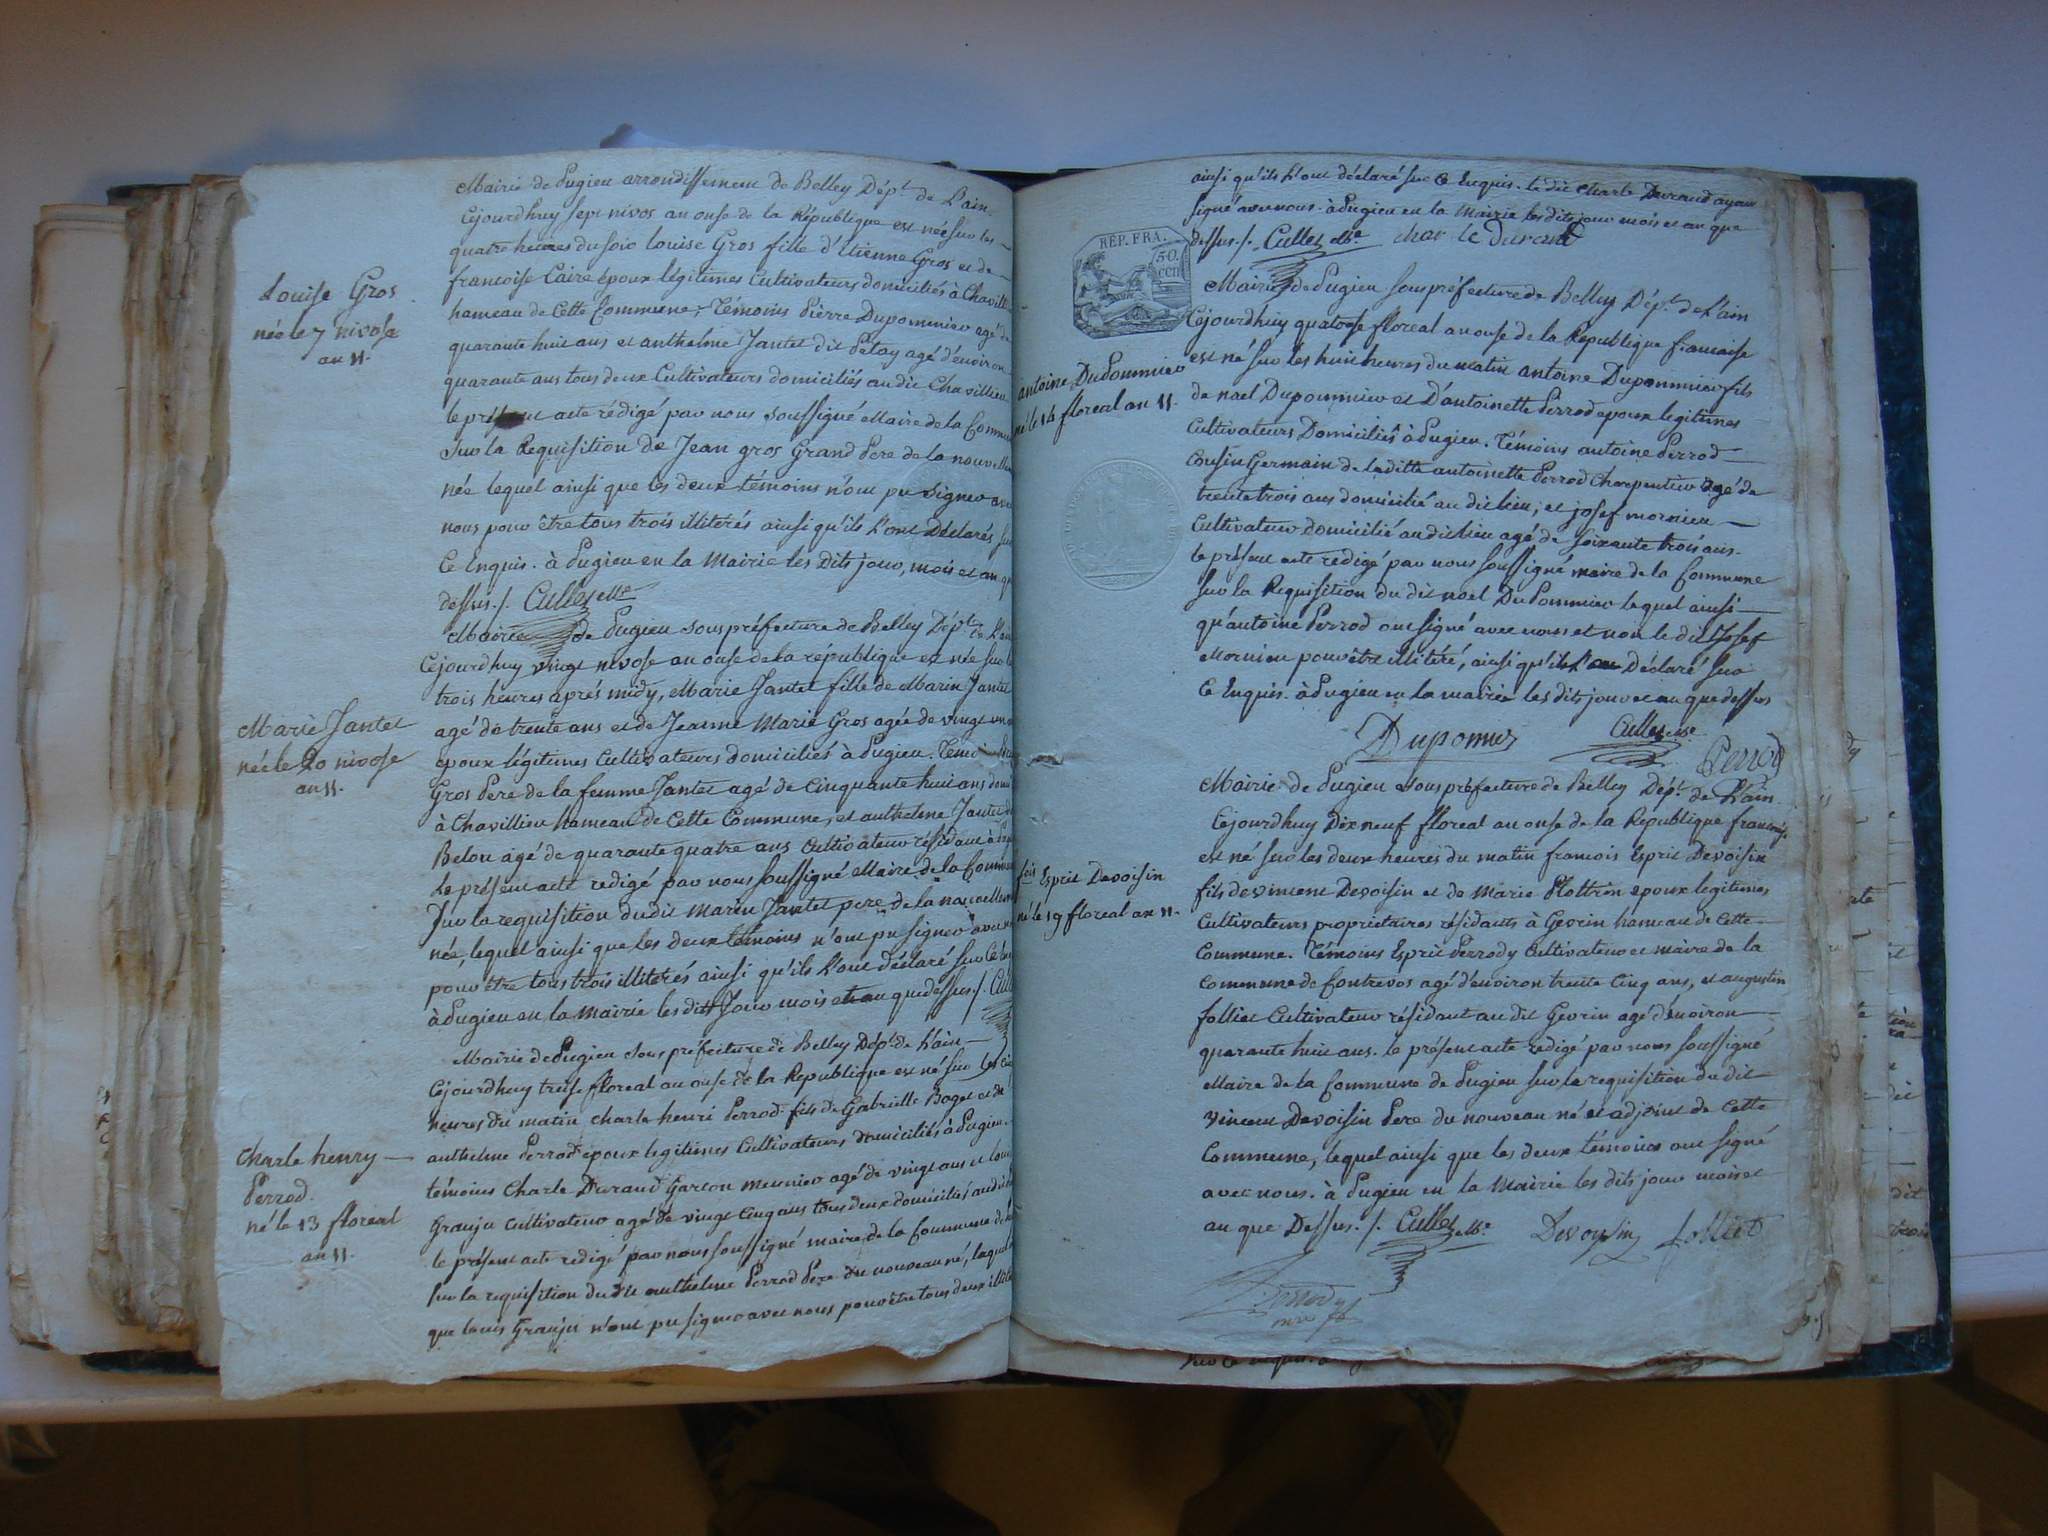 Mairie de Pugieu arrondissement de Belley Dépt. de L'ain
Cejourdhuy sept nivos an onse de la République est née sur les
quatre heures du soir louise Gros fille d'Etienne Gros et de
francoise Caire époux légitimes Cultivateurs domiciliés à Chavill
hameau de Cette Commune, Témoins Pierre Dupommier agé de
quarante huit ans et anthelme Jantet dit Pelay agé d'environ
quarante ans tous deux Cultivateurs domiciliés au dit Chavillieu
le présent acte rédigé par nous soussigné Maire de la Commu
Sur la Requisition de Jean gros Grand Pere de la nouvelle
née lequel ainsi que les deux témoins n'ont pu signer ave
nous pour être tous trois illitérés ainsi qu'ils L'ont Déclarés sur
Ce Enquis. à Pugieu en la Mairie les Dits jour, mois et an q
dessus./. Cullet Me
Louise Gros
née le 7 nivose
an 11.
Mairie de Pugieu souspréfecture de Belley Dépt. de L'ain
Cejourdhuy vingt nivose an onse de la république est née sur l
trois heures aprés midy, Marie Jantet fille de Marin Jantet
agé de trente ans et de Jeanne Marie Gros agée de vingt un
époux légitimes Cultivateurs domiciliés à Pugieu. Témo
Gros Pere de la femme Jantet agé de Cinquante huit ans dom
à Chavillieu hameau de Cette Commune, et anthelme Jantet d
Belou agé de quarante quatre ans Cultivateur résidant à
Le présent acte redigé par nous soussigné Maire de la Commu
Sur la requisition du dit Marin Jantet pere de la nouvellem
née, lequel ainsi que les deux témoins n'ont pu signer avec n
pour être tous trois illiterés ainsi qu'ils L'ont déclaré sur Ce En
à Pugieu en la Mairie les dits Jour mois et an que dessus./. Cull
Marie Jantet
née le 20 nivose
an 11.
Mairie de Pugieu souspréfecture de Belley Dépt. de L'ain
Cejourdhuy treise floreal an onse de la Republique est né sur les
heures du matin charle henri Perrod fils de Gabrielle Boget et de
anthelme Perrod epoux legitimes Cultivateurs domiciliés à Pugieu.
témoins Charle Durand Garcon meunier agé de vingt ans et lou
Granju cultivateur agé de vingt Cinq ans tous deux domiciliés au dit
le présent acte redigé par nous soussigné maire de la Commune de
sur la requisition du dit anthelme Perrod Pere du nouveau né, lequel
que louis Granju n'ont pu signer avec nous pour être tous deux illité
Charle henry
Perrod.
né le 13 floreal
an 11.
ainsi qu'ils L'ont déclaré sur Ce Enquis. le dit Charle Durand ayant
signé avec nous. à Pugieu en la Mairie les dits jour mois et an que
dessus./. Cullet Me charle durand
RÉP. FRA.
50.
cen
Mairie de Pugieu souspréfecture de Belley Dépt. de L'ain
Cejourdhuy quatorse floreal an onse de la Republique francaise
est né sur les huit heures du matin antoine Dupommier fils
de noel Dupommier et D'antoinette Perrod epoux legitimes
Cultivateurs Domiciliés à Pugieu. Témoins antoine Perrod
Cousin Germain de la ditte antoinette Perrod Charpentier agé de
trente trois ans domicilié au dit lieu, et josef mornieu
Cultivateur domicilié au dit lieu agé de soixante trois ans.
le présent acte rédigé par nous soussigné maire de la Commune
sur la Requisition du dit noel DuPommier lequel ainsi
qu'antoine Perrod ont signé avec nous et non le dit Josef
Mornieu pour être illitéré, ainsi qu'ils L'ont Déclaré sur
Ce Enquis. à Pugieu en la mairie les dits jour et an que dessus
Dupomier Cullet Me Perrod
antoine DuPommier
né le 14 floreal an 11.
Mairie de Pugieu souspréfecture de Belley Dépt. de L'ain
Cejourdhuy Dix neuf floreal an onse de la République francaise
est né sur les deux heures du matin francois Esprit Devoisin
fils de vincent Devoisin et de Marie epoux legitimes
Cultivateurs proprietaires résidants à Gevrin hameau de Cette
Commune. Témoins Esprit Perrody Cultivateur et maire de la
Commune de Contrevos agé d'environ trente Cinq ans, et augustin
folliet Cultivateur résidant au dit Gevrin agé d'environ
quarante huit ans. le présent acte redigé par nous soussigné
Maire de la Commune de Pugieu sur la requisition du dit
Vincent Devoisin Pere du nouveau né et adjoint de Cette
Commune, lequel ainsi que les deux témoins ont signé
avec nous. à Pugieu en la Mairie les dits jour mois et
an que Dessus./. Cullet Me Devoysin folliet
Perrody
fcois Esprit Devoisin
né le 19 floreal an 11.